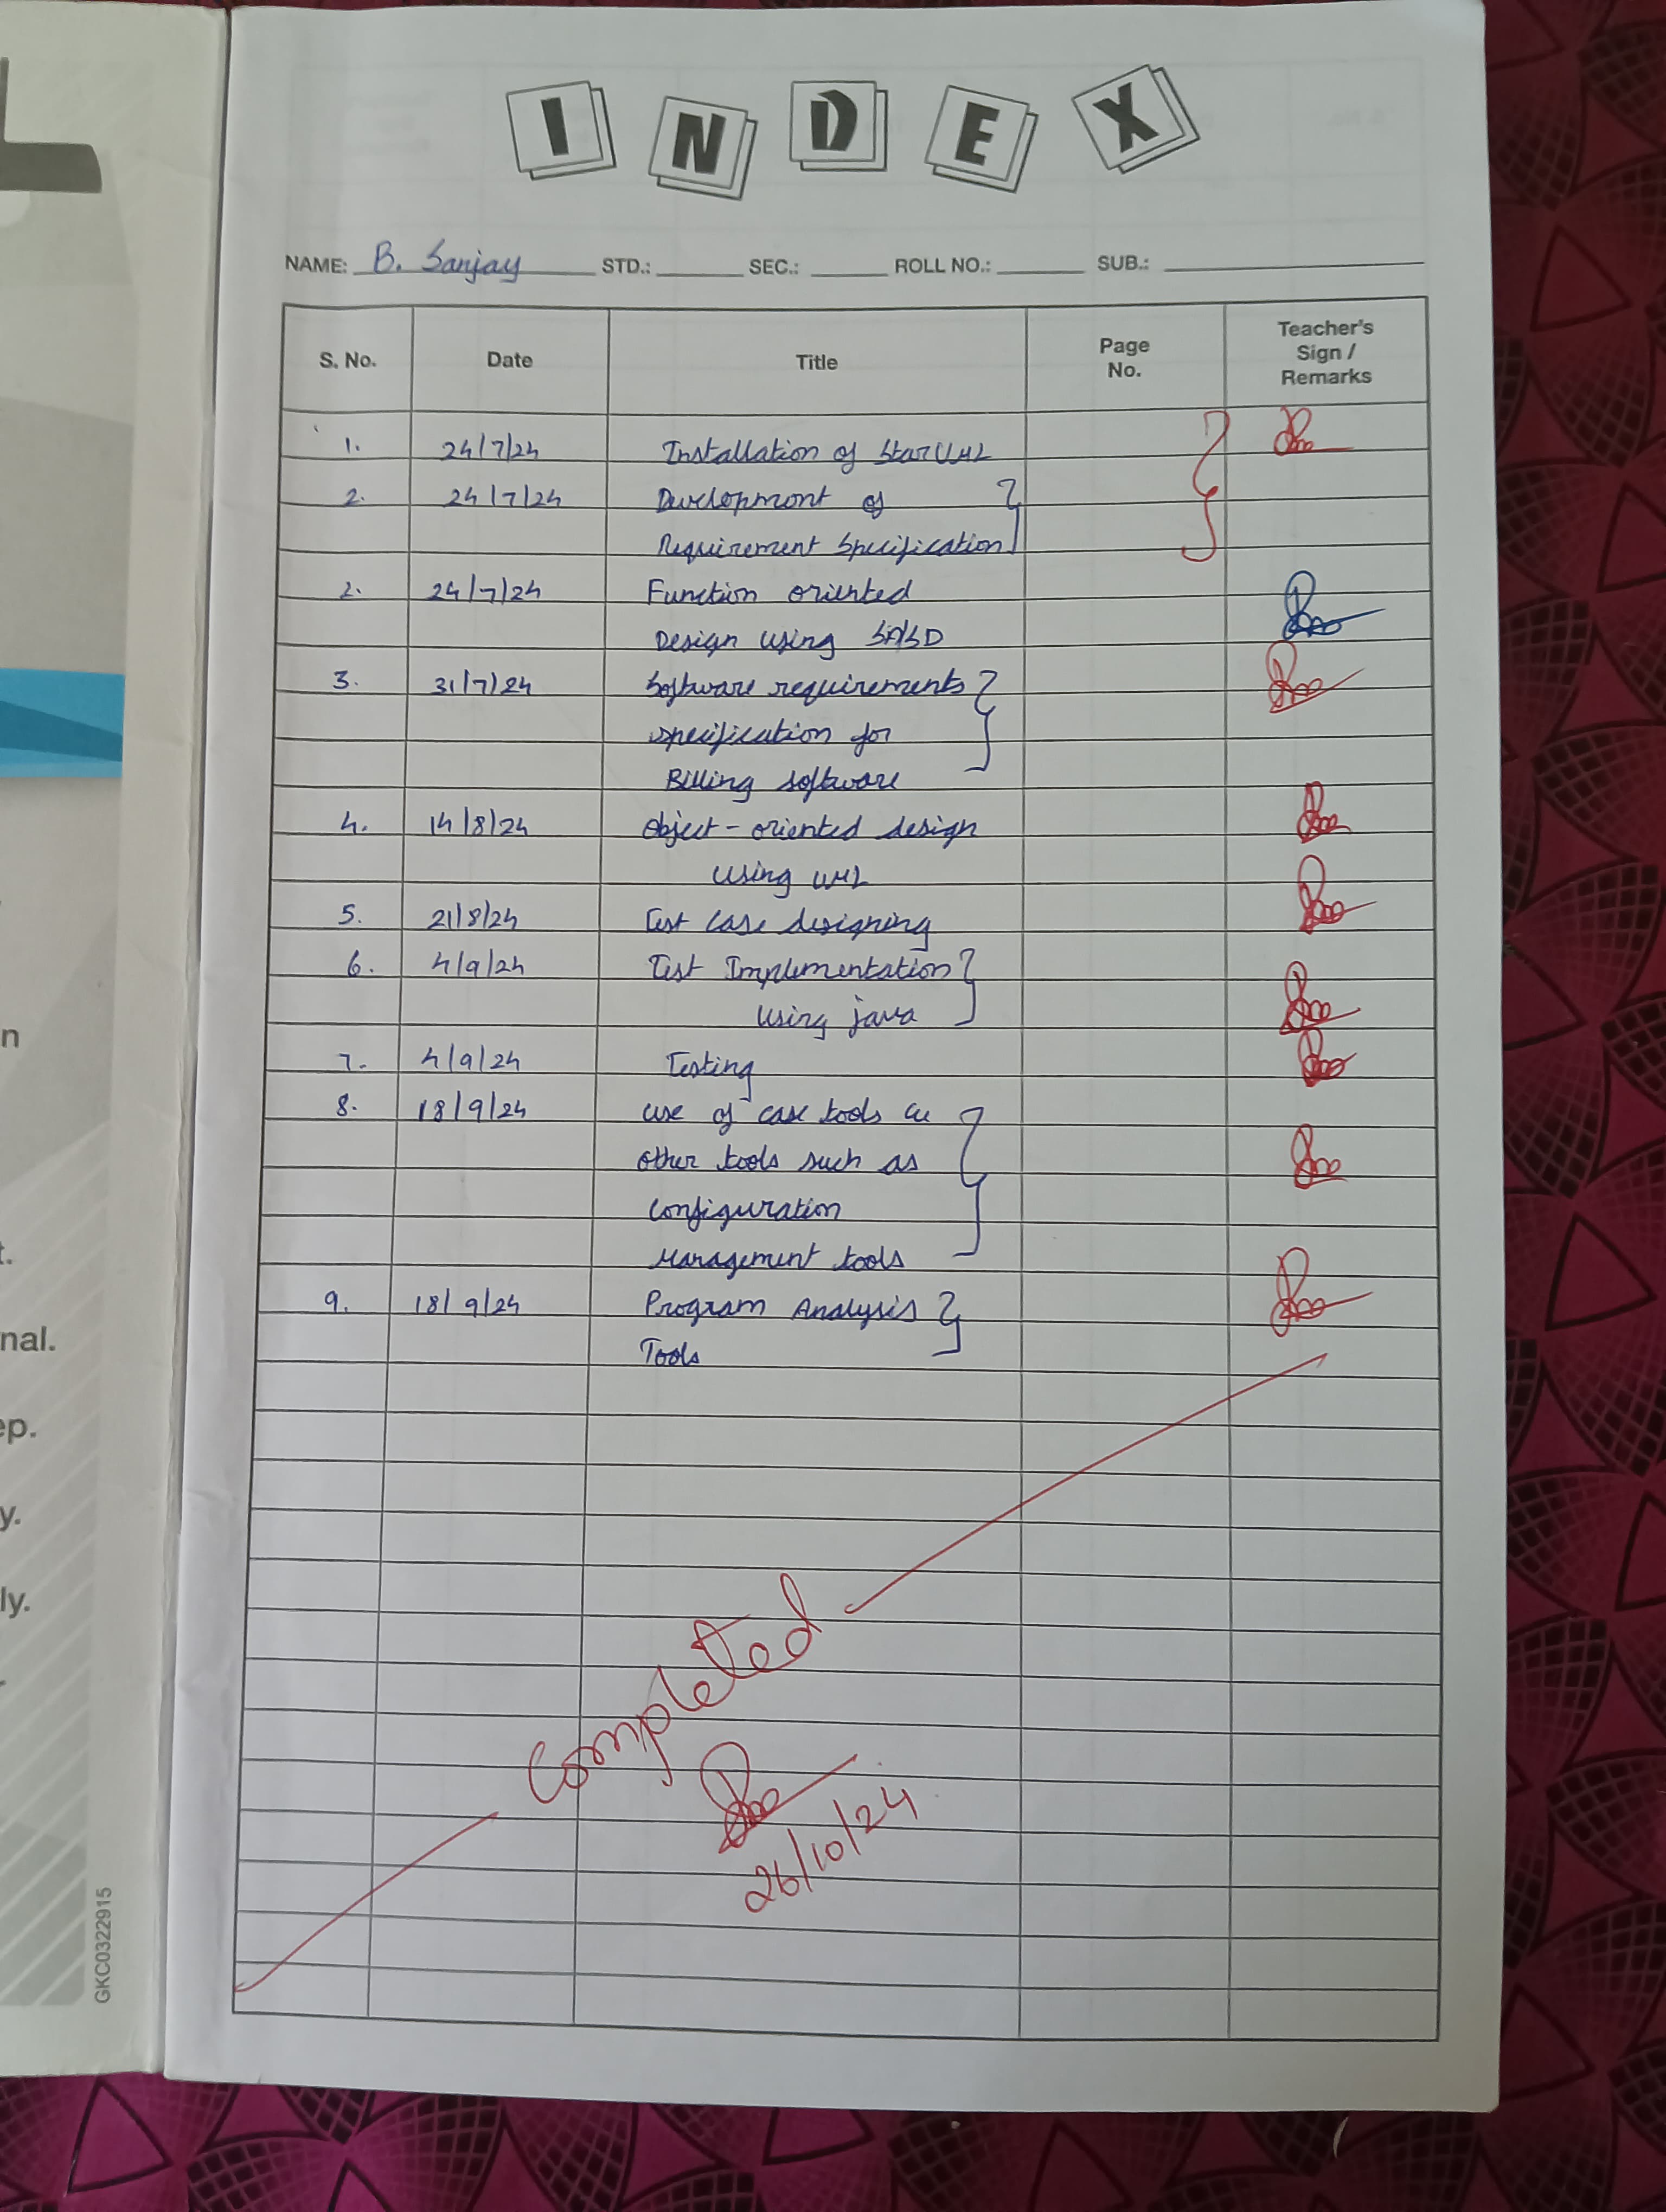 L
INDEX
NAME: B. Sanjay STD.: SEC.: ROLL NO.: SUB.:
S. No. Date Title Page No. Teacher's Sign / Remarks
1. 24/7/24 Installation of StarUML
2. 24/7/24 Development of
Requirement Specification
2. 24/7/24 Function oriented
Design using SA/SD
3. 31/7/24 Software requirements
specification for
Billing software
4. 14/8/24 Object-oriented design
using UML
5. 21/8/24 Test case designing
6. 4/9/24 Test Implementation
using java
7. 4/9/24 Testing
8. 18/9/24 use of case tools
other tools such as
configuration
Management tools
9. 18/9/24 Program Analysis
Tools
Completed
26/10/24
n
t.
nal.
ep.
y.
ly.
GKC0322915